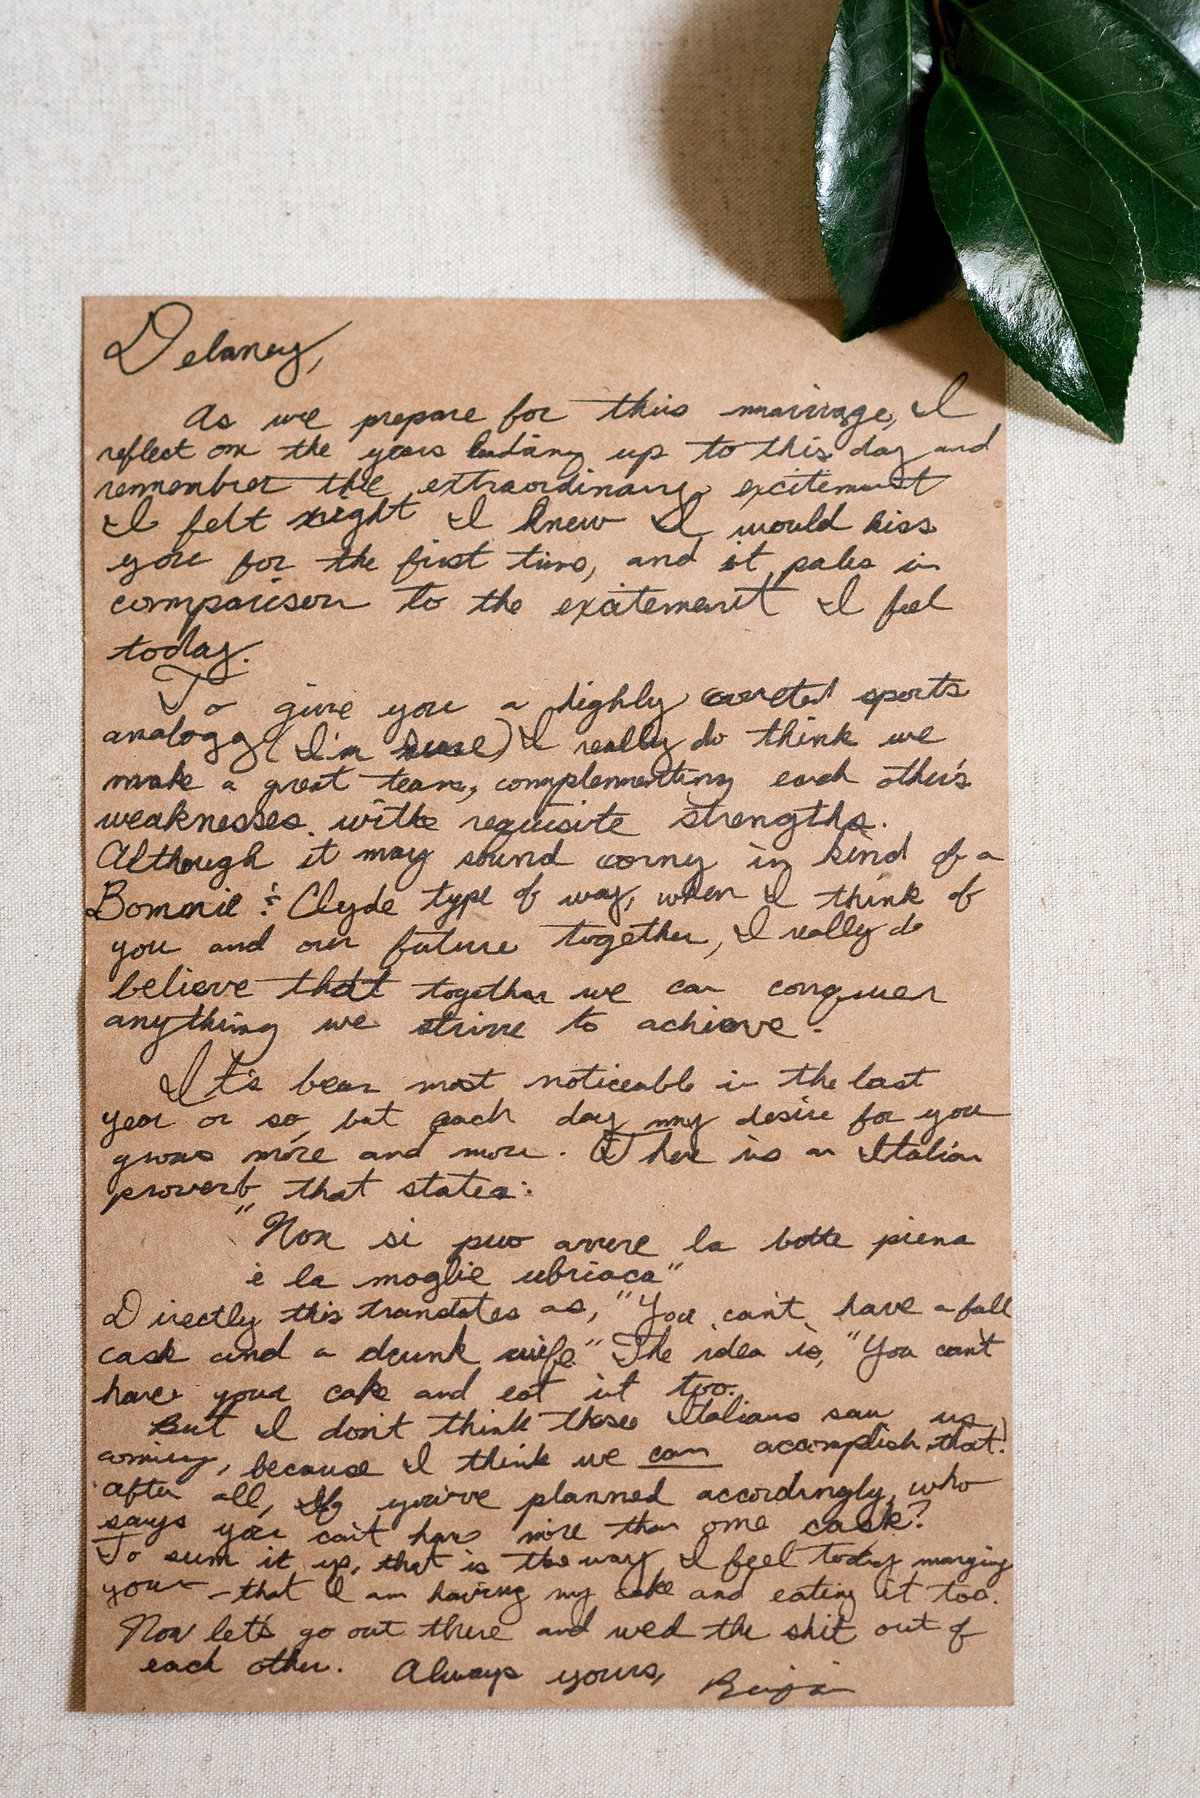 Delaney,
As we prepare for this marriage, I
reflect on the years leading up to this day and
remember the extraordinary excitement
I felt right I knew I would kiss
you for the first time, and it pales in
comparison to the excitement I feel
today.
To give you a highly coveted sports
analogy (I'm sure) I really do think we
make a great team, complementing each other's
weaknesses with requisite strengths.
Although it may sound corny in kind of a
Bonnie & Clyde type of way, when I think of
you and our future together, I really do
believe that together we can conquer
anything we strive to achieve.
It's been most noticeable in the last
year or so, but each day my desire for you
grows more and more. There is an Italian
proverb that states:
"Non si puo avere la botte piena
è la moglie ubriaca"
Directly this translates as, "You can't have a full
cask and a drunk wife." The idea is, "You can't
have your cake and eat it too.
But I don't think those Italians saw us
coming, because I think we can accomplish that!
after all, If you've planned accordingly, who
says you can't have more than one cask?
To sum it up, that is the way I feel today marrying
you - that I am having my cake and eating it too.
Now let's go out there and wed the shit out of
each other. Always yours,